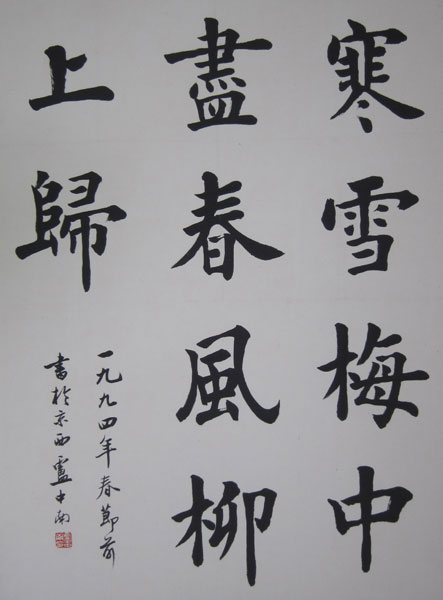 寒雪梅中
盡春風柳
上歸
一九九四年春節前
書於京西盧中南